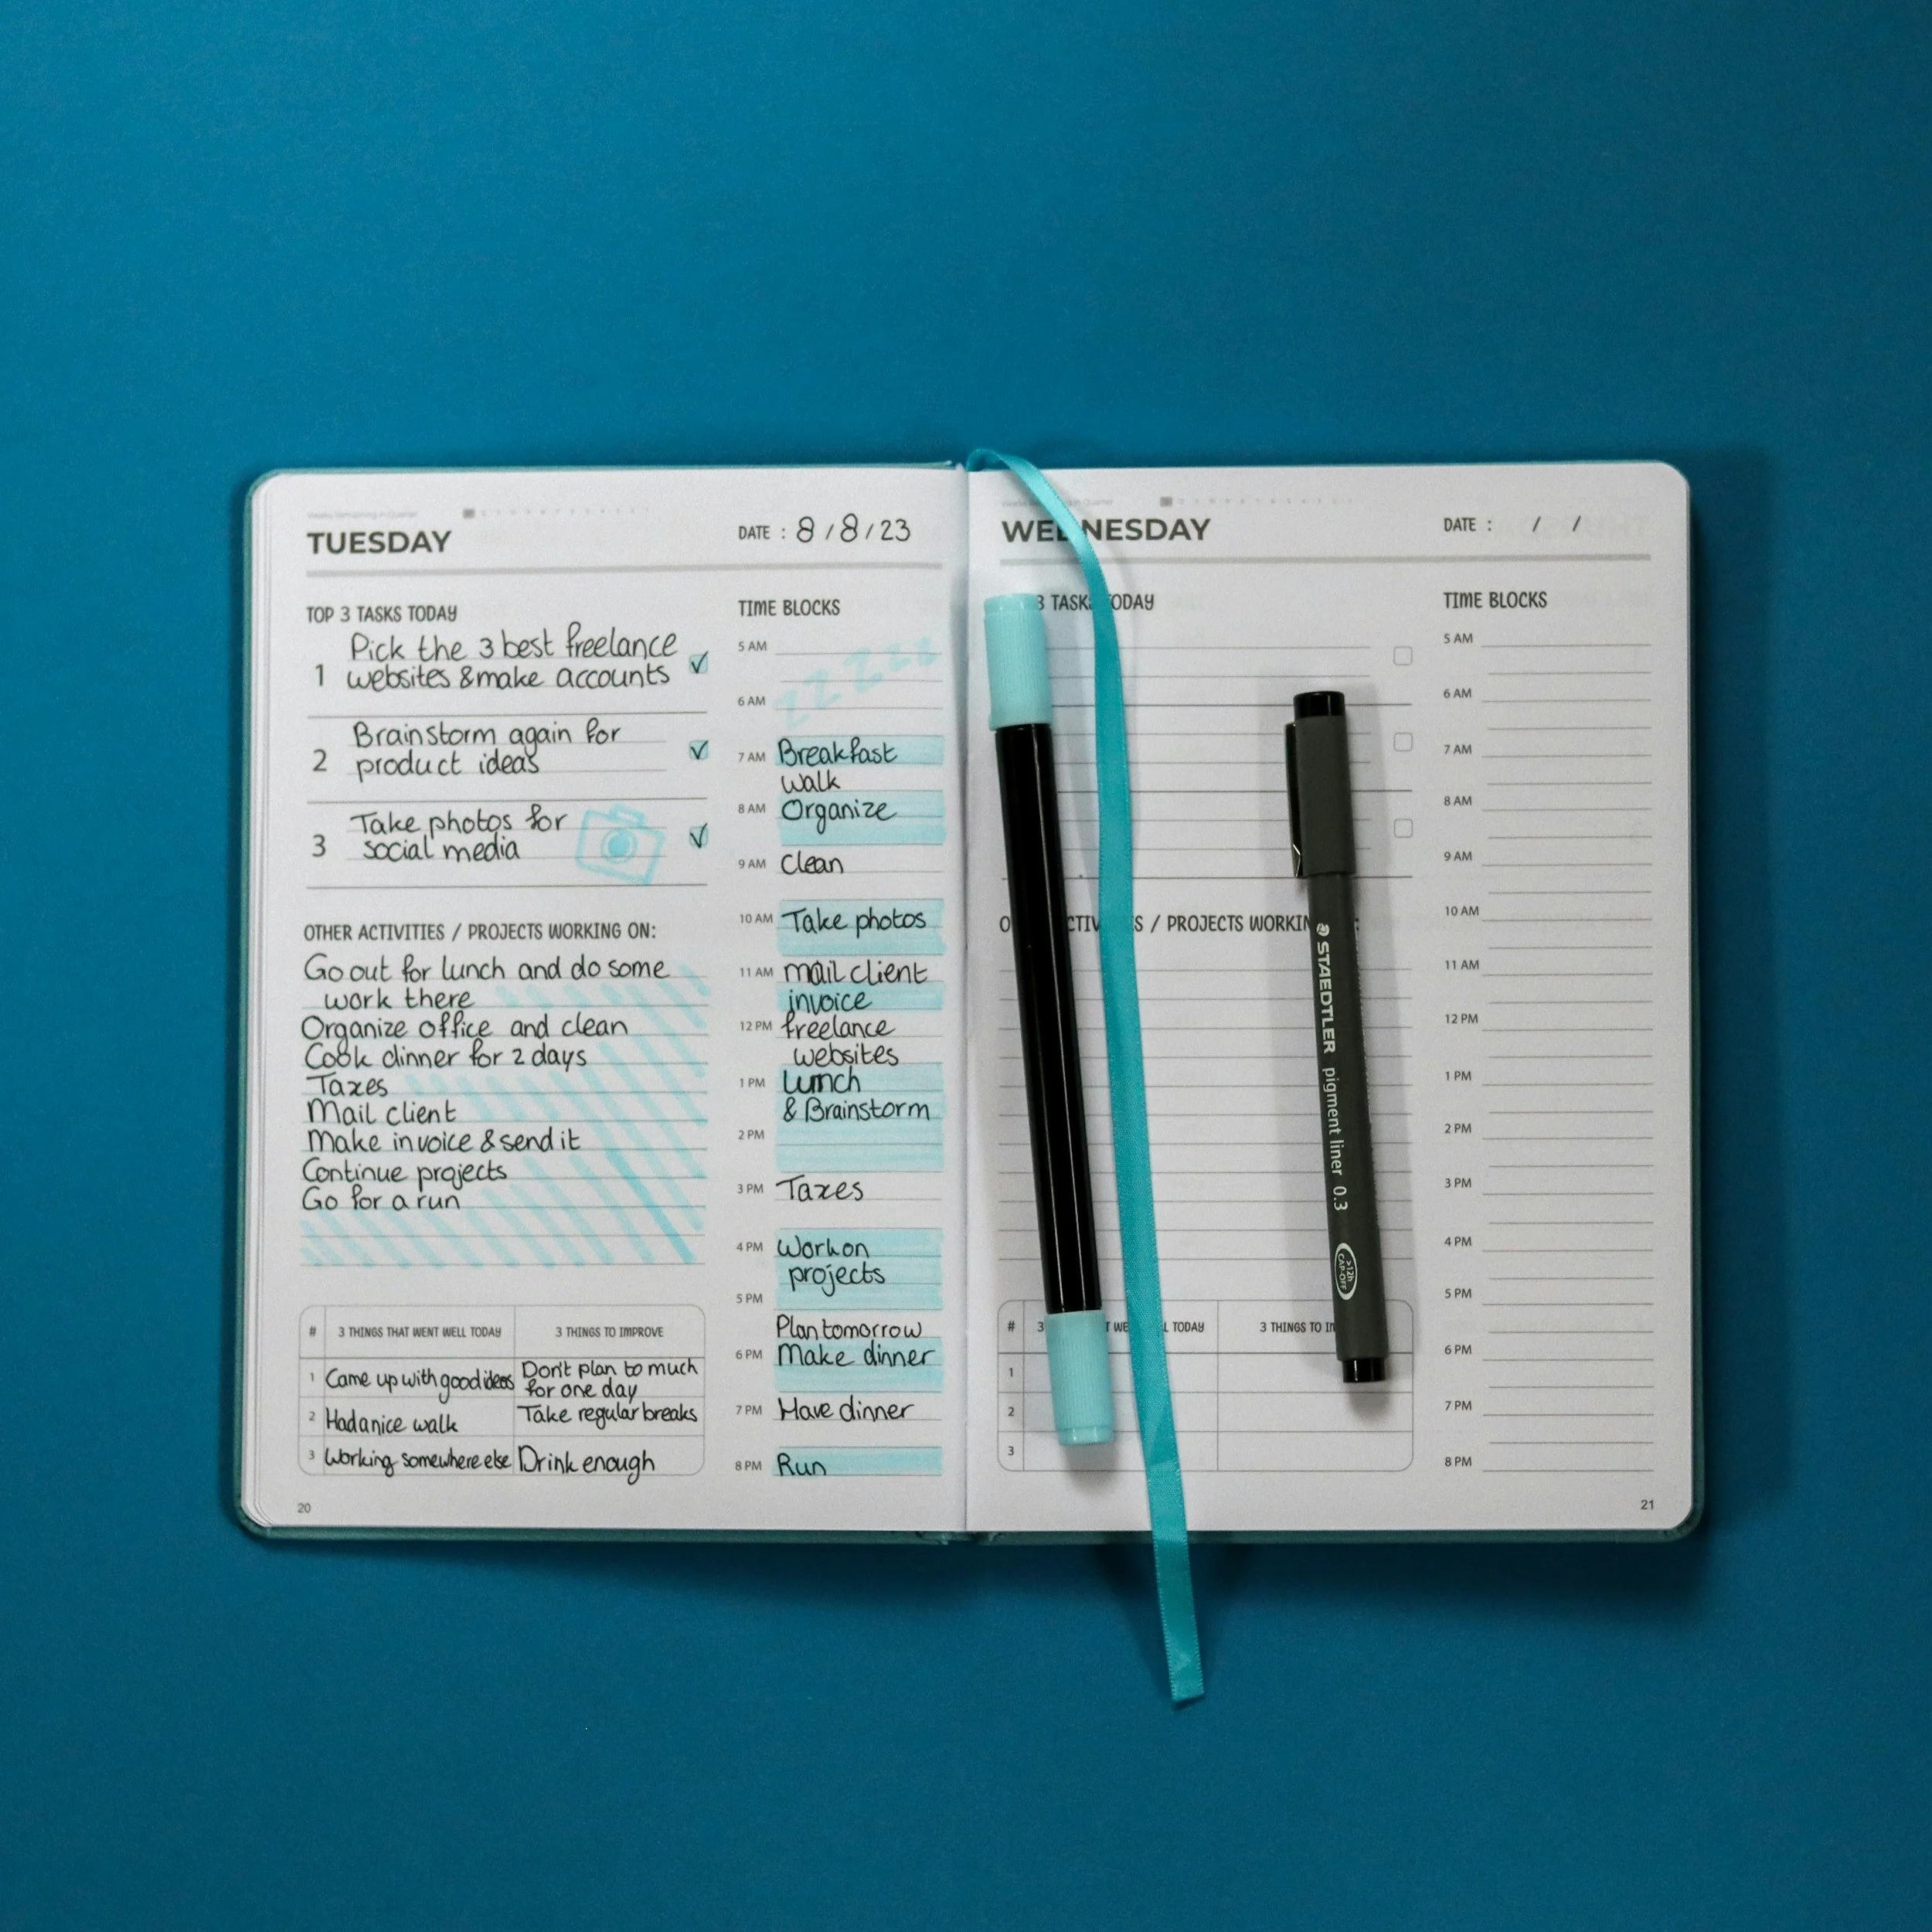 TUESDAY
DATE : 8/8/23
TOP 3 TASKS TODAY
1 Pick the 3 best freelance
websites & make accounts
2 Brainstorm again for
product ideas
3 Take photos for
social media
OTHER ACTIVITIES / PROJECTS WORKING ON:
Go out for lunch and do some
work there
Organize office and clean
Cook dinner for 2 days
Taxes
Mail client
Make invoice & send it
Continue projects
Go for a run
# 3 THINGS THAT WENT WELL TODAY 3 THINGS TO IMPROVE
1 Came up with good ideas Don't plan to much
for one day
2 Had a nice walk Take regular breaks
3 Working somewhere else Drink enough
20
TIME BLOCKS
5 AM
zzzzzz
6 AM
7 AM Breakfast
walk
8 AM Organize
9 AM Clean
10 AM Take photos
11 AM mail client
invoice
12 PM freelance
websites
1 PM Lunch
& Brainstorm
2 PM
3 PM Taxes
4 PM Work on
projects
5 PM
Plan tomorrow
6 PM Make dinner
7 PM Have dinner
8 PM Run
WEDNESDAY
DATE : / /
3 TASKS TODAY
/ PROJECTS WORKIN
# 3 TODAY 3 THINGS TO
1
2
3
TIME BLOCKS
5 AM
6 AM
7 AM
8 AM
9 AM
10 AM
11 AM
12 PM
1 PM
2 PM
3 PM
4 PM
5 PM
6 PM
7 PM
8 PM
21
STAEDTLER pigment liner 0.3
>12h
CAP-OFF